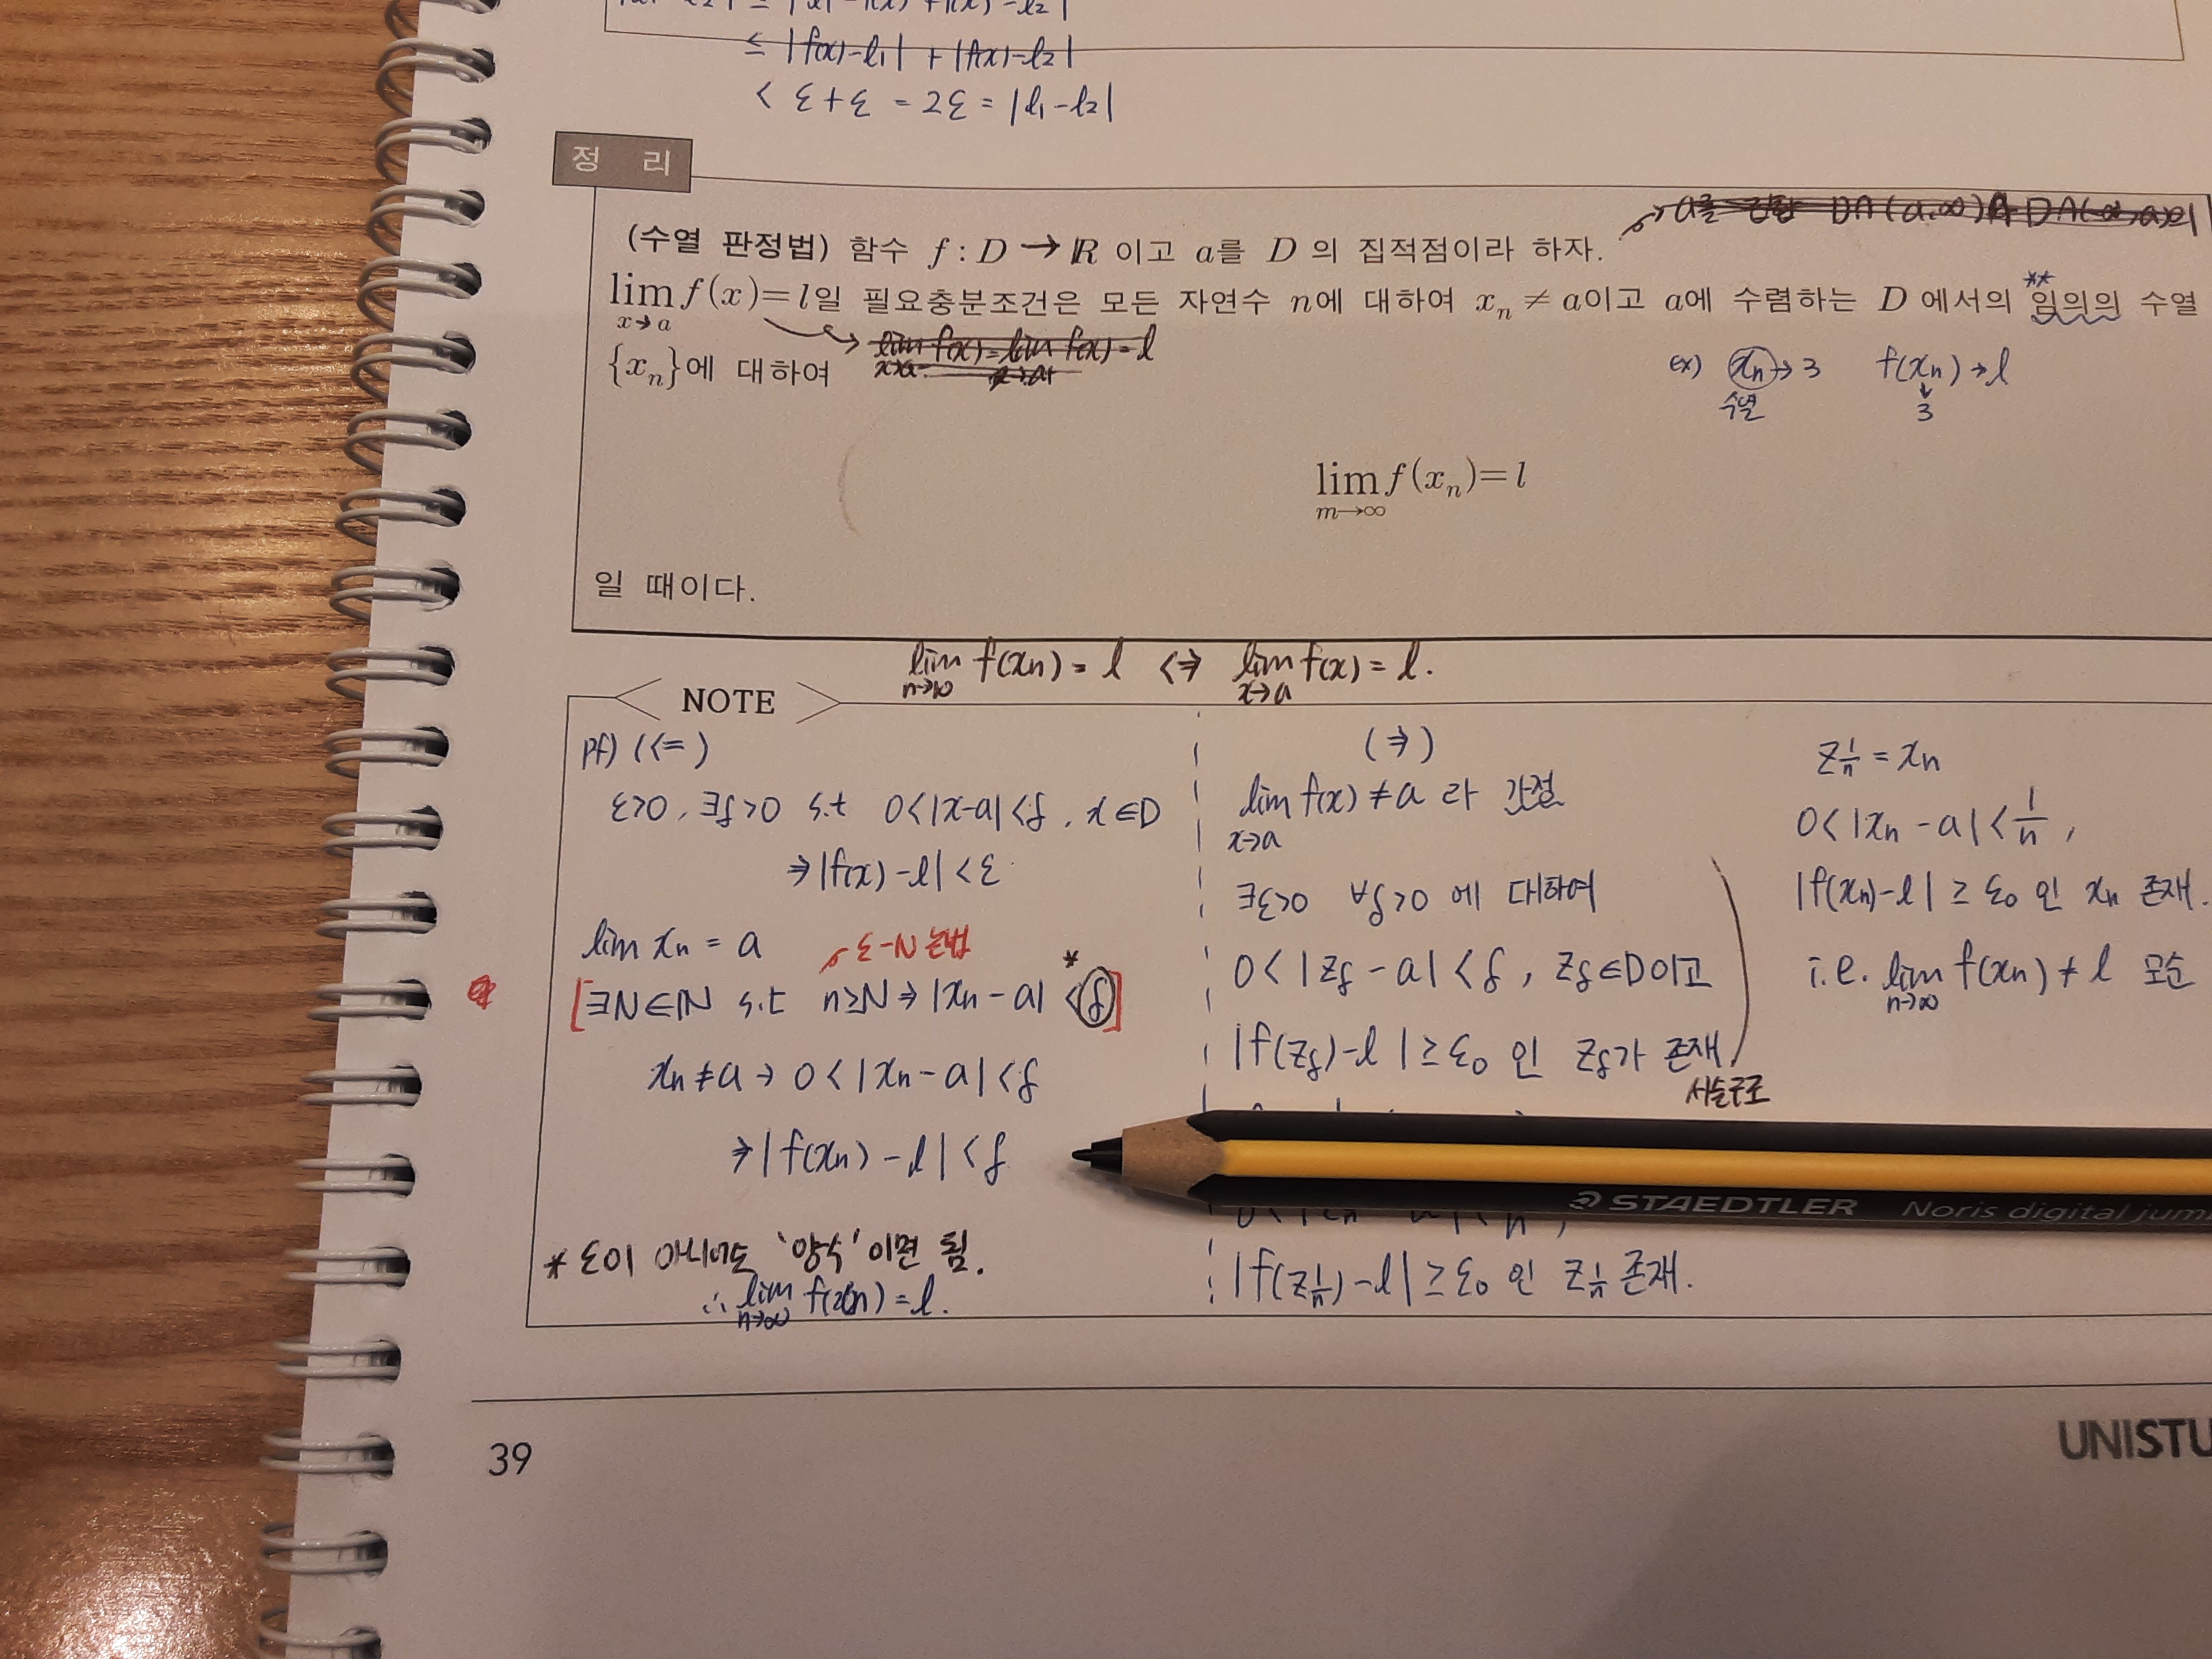 ≤ |f(x)-l₁| + |f(x)-l₂|
< ε+ε = 2ε = |l₁-l₂|
정 리
(수열 판정법) 함수 f : D → R 이고 a를 D 의 집적점이라 하자.
lim f(x) = l일 필요충분조건은 모든 자연수 n에 대하여 xₙ ≠ a이고 a에 수렴하는 D 에서의 임의의 수열
x→a
{xₙ}에 대하여
ex) xₙ → 3 f(xₙ) → l
수열 3
lim f(xₙ) = l
m→∞
일 때이다.
lim f(xₙ) = l ⇔ lim f(x) = l.
n→∞ x→a
NOTE
pf) (<=)
ε>0, ∃δ>0 s.t 0<|x-a|<δ, x∈D
⇒ |f(x)-l| < ε
lim xₙ = a
ε-N 논법
[∃N∈ℕ s.t n≥N ⇒ |xₙ-a| < δ]
*
xₙ≠a → 0<|xₙ-a|<δ
⇒ |f(xₙ)-l| < δ
* ε이 아니어도 '양수'이면 됨.
∴ lim f(xₙ) = l.
n→∞
(⇒)
lim f(x) ≠ a 라 가정
x→a
∃ε>0 ∀δ>0 에 대하여
0<|z_δ - a|<δ, z_δ∈D이고
|f(z_δ)-l| ≥ ε₀ 인 z_δ가 존재
|f(z_{1/n})-l| ≥ ε₀ 인 z_{1/n} 존재.
z_{1/n} = xₙ
0<|xₙ-a|<1/n,
|f(xₙ)-l| ≥ ε₀ 인 xₙ 존재.
i.e. lim f(xₙ) ≠ l 모순
n→∞
STAEDTLER Noris digital jum
39
UNISTU